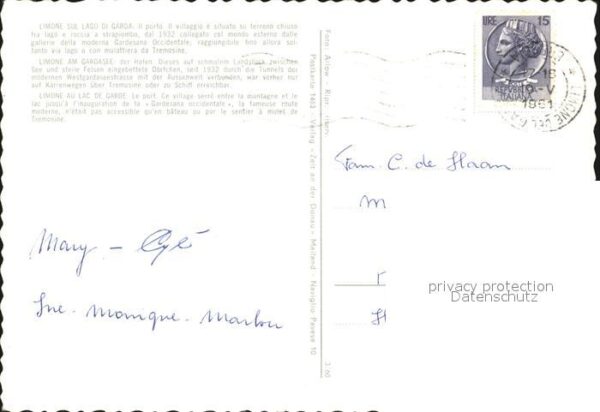 LIMONE SUL LAGO DI GARDA. Il porto. Il villaggio è situato su terreno chiuso
fra lago e roccia a strapiombo, dal 1932 collegato col mondo esterno dalle
gallerie della moderna Gardesana Occidentale, raggiungibile fino allora sol-
tanto via lago o con mulattiera da Tremosine.
LIMONE AM GARDASEE. der Hafen. Dieses auf schmalem Landstück zwischen
See und steile Felsen eingebettete Dörfchen, seit 1932 durch die Tunnels der
modernen Westgardaseestrasse mit der Aussenwelt verbunden, war vorher nur
auf Karrenwegen über Tremosine oder zu Schiff erreichbar.
LIMONE AU LAC DE GARDE. Le port. Ce village serré entre la montagne et le
lac jusqu'à l'inauguration de la « Gardesana occidentale », la fameuse route
moderne, n'était pas accessible qu'en bâteau ou par le sentier à mulets de
Tremosine.
Foto:
Postkarte 1463 - Verlag « Zeit an der Donau » Mailand - Naviglio Pavese 10
3.60
LIRE 15
ITALIANA
1961
Fam C. de Haan
m
privacy protection
Datenschutz
Mary -
Monique - Marlou